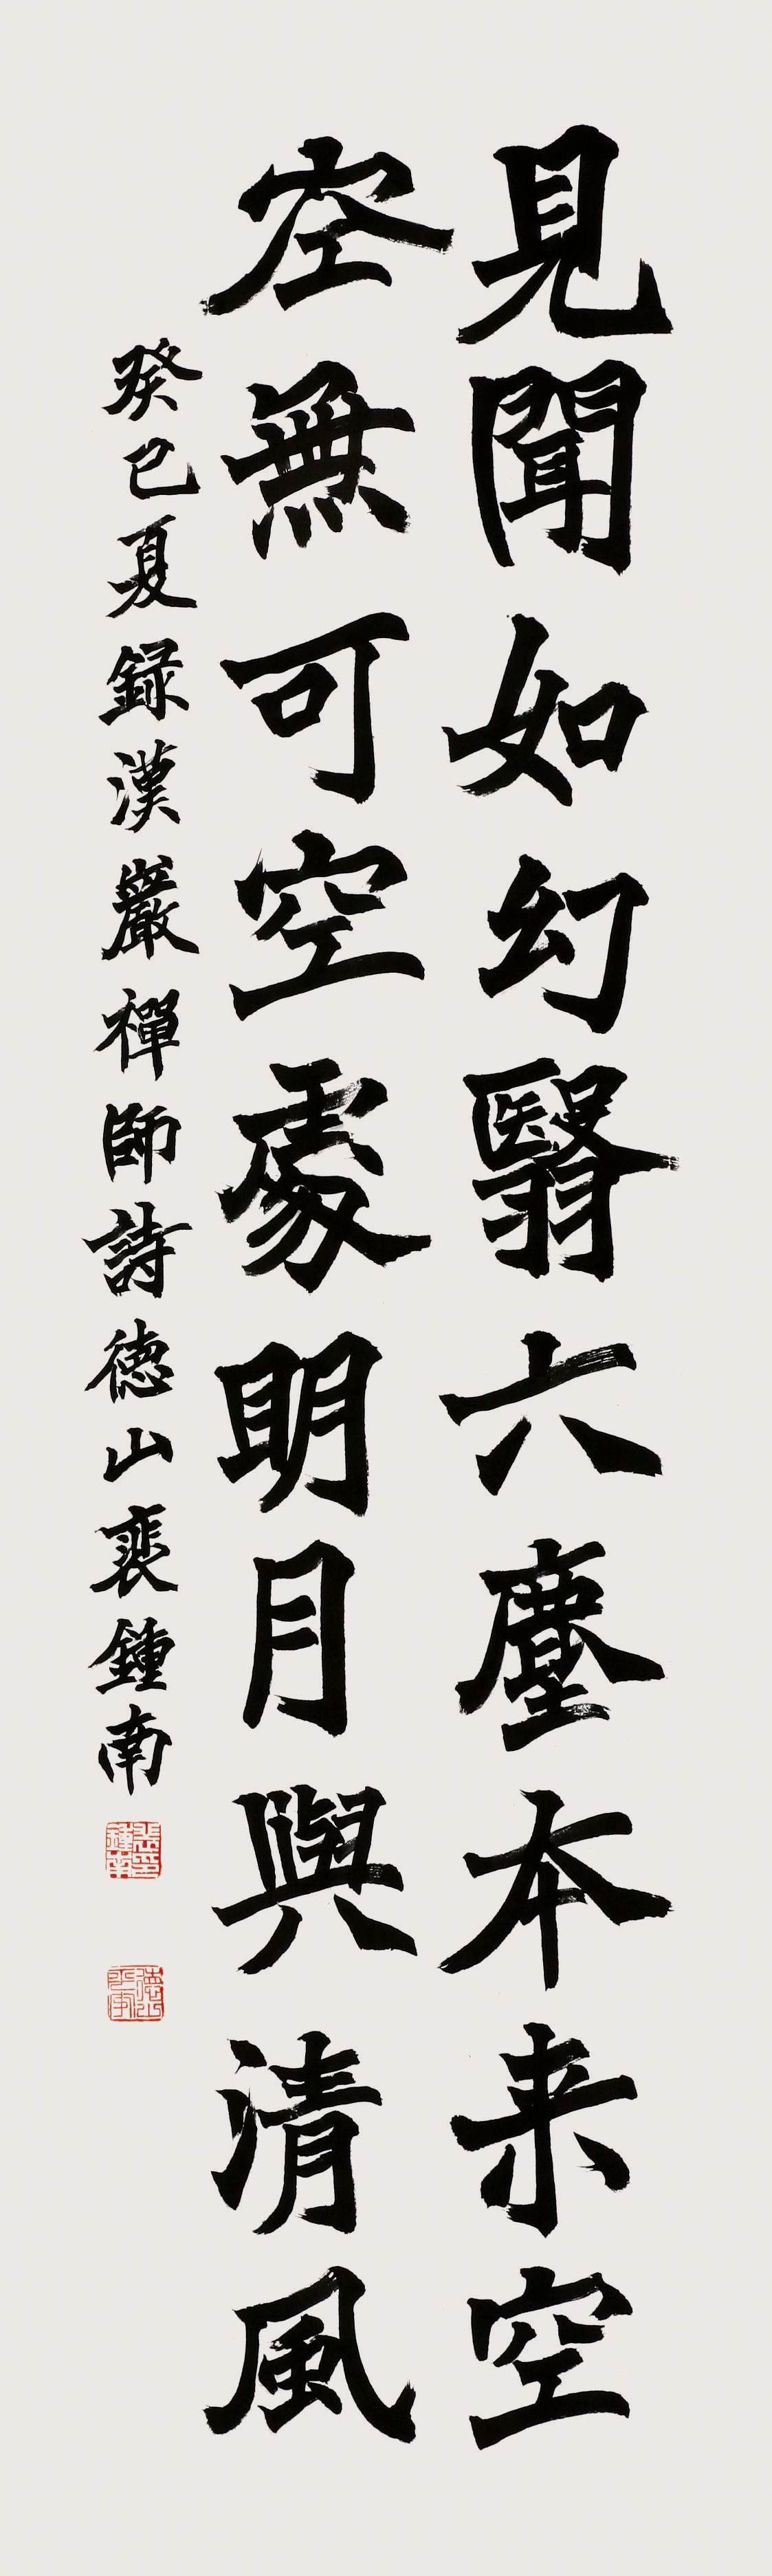 見聞如幻翳六塵本来空
空無可空處明月與清風
癸巳夏録漢巖禪師詩德山裵鍾南
裵鍾南印
德山